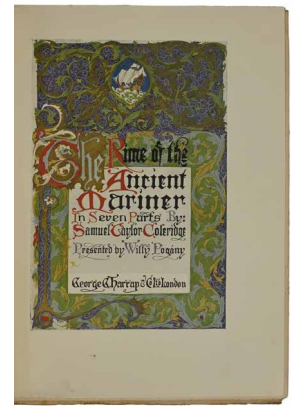 The Rime of the
Ancient
Mariner
In Seven Parts By:
Samuel Taylor Coleridge
Presented by Willy Pogány
George G. Harrap & Co. London